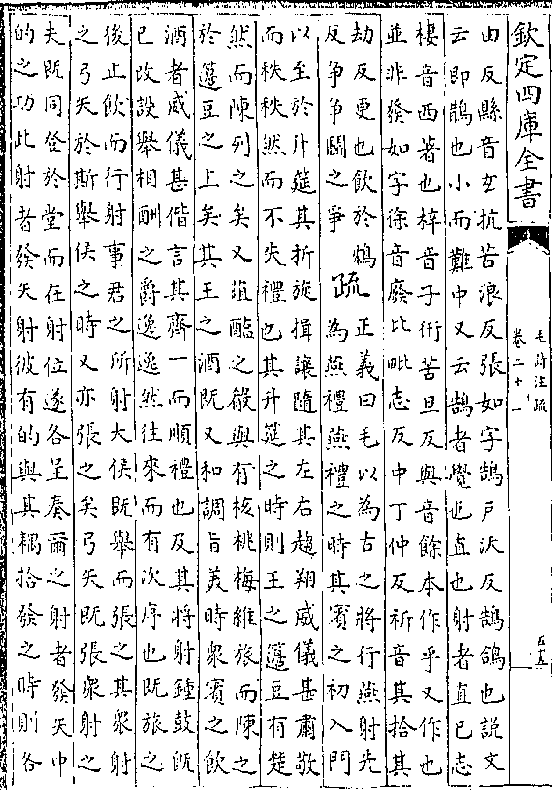 欽定四庫全書
毛詩注疏
卷二十一
由反縣音玄抗苦浪反張如字鵠戶沃反鵠鴿也說文
云即鵲也小而難中又云鵠者覺也直也射者直己志
棲音西著也梓音子衎苦旦反與音餘本作乎又作也
並非發如字徐音廢比毗志反中丁仲反祈音其拾其
劫反更也飲於鴆
反爭爭鬭之爭
疏
正義曰毛以為古之將行燕射先
為燕禮燕禮之時其賓之初入門
以至於升筵其折旋揖讓隨其左右趨翔威儀甚肅敬
而秩秩然而不失禮也其升筵之時則王之籩豆有楚
然而陳列之矣又葅醢之殽與有核桃梅維旅而陳之
於籩豆之上矣其王之酒既又和調旨美時衆賓之飲
酒者威儀甚偕言其齊一而順禮也及其將射鍾鼓既
已改設舉相酬之爵逸逸然往來而有次序也既旅之
後止飲而行射事君之所射大侯既舉而張之其衆射
之弓矢於斯舉侯之時又亦張之矣弓矢既張衆射之
夫既同登於堂而在射位遂各呈奏爾之射者發矢中
的之功此射者發矢射彼有的與其耦拾發之時則各